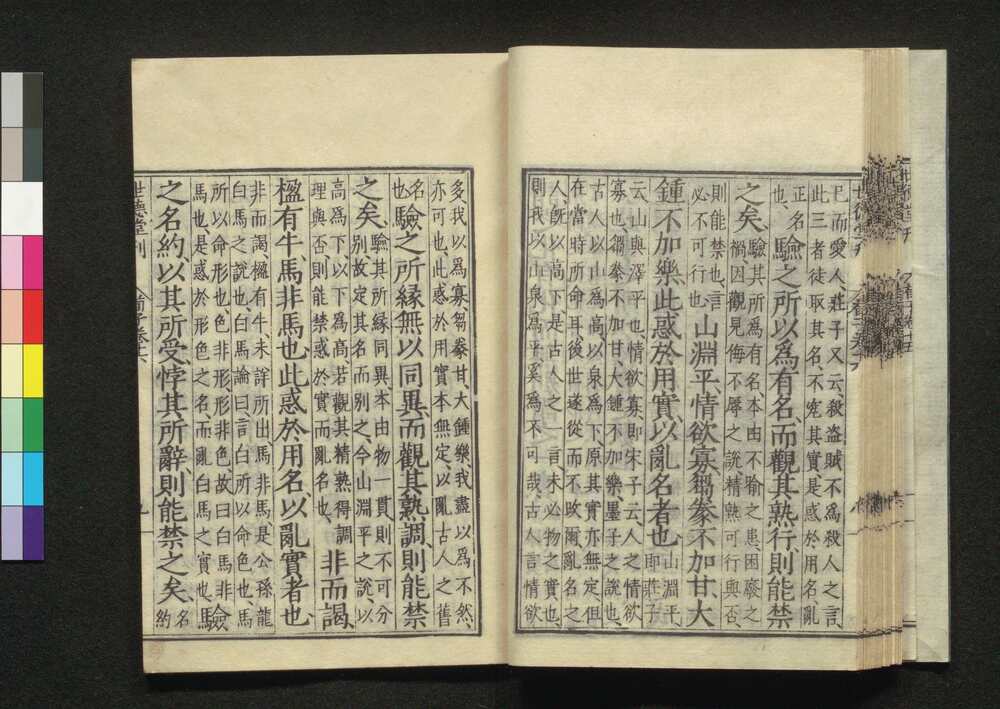 巳而愛人、莊子又云殺盗賊不爲殺人之言、
此三者徒取其名、不究其實、是惑於用名亂
正名也、驗之所以爲有名、而觀其熟行、則能禁
之矣、驗其所爲有名、本由不喻之患、困廢之
禍、因觀見侮不辱之說、精熟可行與否、
則能禁也、言必不可行也、山淵平、情欲寡、芻豢不加甘、大
鍾不加樂、此惑於用實、以亂名者也、山淵平、即莊子
云山與澤平也、情欲寡、即宋子云、人之情欲
寡也、芻豢不加甘大鍾不加樂、墨子之說也、
古人以山爲高、以泉爲下、原其實亦無定、但
在當時所命耳、後世遂從而不改爾、亂名之
人、旣以高下是古人之一言、未必物之實也、
則我以山泉爲平、奚爲不可哉、古人言情欲
多、我以爲寡、芻豢甘、大鍾樂、我盡以爲不然、
亦可也、此惑於用實本無定、以亂古人之舊
名也、驗之所緣無以同異、而觀其熟調、則能禁
之矣、驗其所緣同異、本由物一貫則不可分
別、故定其名而別之、今山淵平之說、以
高爲下、以下爲高、若觀其精熟得調
理與否、則能禁惑於實而亂名也、非而謁、
楹有牛、馬非馬也、此惑於用名、以亂實者也
非而謁楹有牛、未詳所出、馬非馬、是公孫龍
白馬之說也、白馬論曰、言白所以命色也、馬
所以命形也、色非形、形非色、故曰白馬非
馬也、是惑於形色之名、而亂白馬之實也、驗
之名約、以其所受、悖其所辭、則能禁之矣、名約
世德堂刊